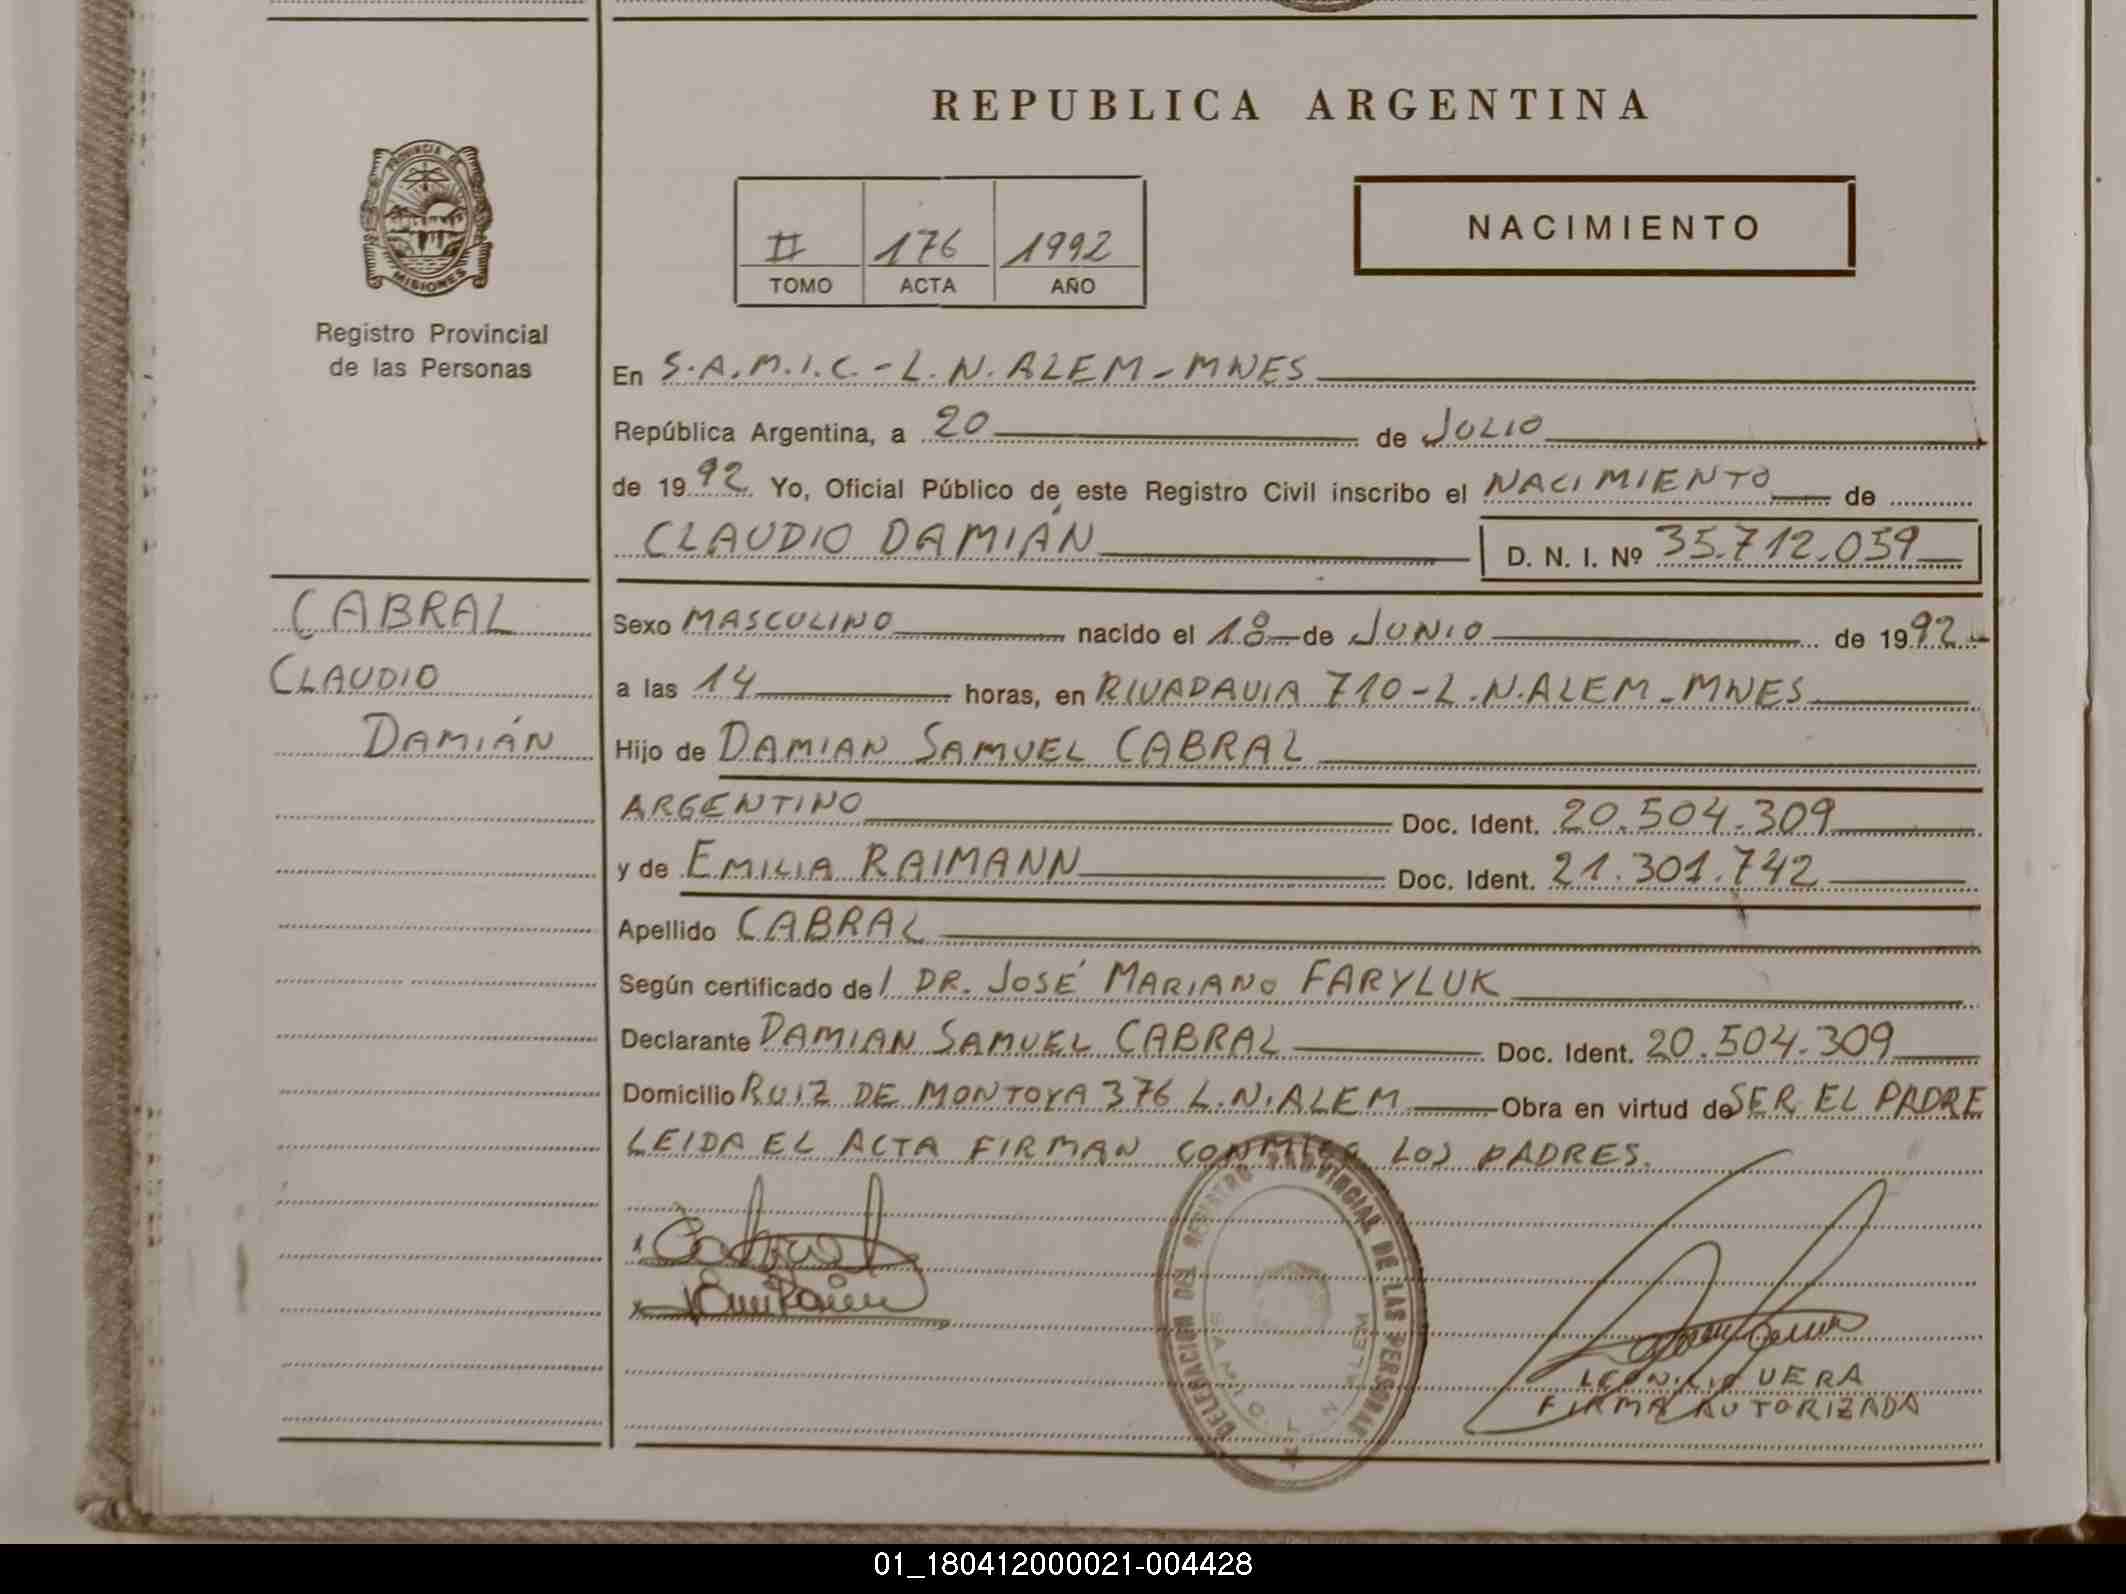 REPUBLICA ARGENTINA
PROVINCIA DE
MISIONES
Registro Provincial
de las Personas
II 176 1992
TOMO ACTA AÑO
NACIMIENTO
En S.A.M.I.C.-L.N.ALEM-MNES
República Argentina, a 20 de JULIO
de 1992 Yo, Oficial Público de este Registro Civil inscribo el NACIMIENTO de
CLAUDIO DAMIÁN D. N. I. Nº 35.712.059
CABRAL
CLAUDIO
DAMIÁN
Sexo MASCULINO nacido el 18 de JUNIO de 1992
a las 14 horas, en RIVADAVIA 710-L.N.ALEM-MNES
Hijo de DAMIAN SAMUEL CABRAL
ARGENTINO Doc. Ident. 20.504.309
y de EMILIA RAIMANN Doc. Ident. 21.301.742
Apellido CABRAL
Según certificado de/ DR. JOSÉ MARIANO FARYLUK
Declarante DAMIAN SAMUEL CABRAL Doc. Ident. 20.504.309
Domicilio RUIZ DE MONTOYA 376 L.N.ALEM Obra en virtud de SER EL PADRE
LEIDA EL ACTA FIRMAN CONMIGO LOS PADRES.
Cabral
DELEGACION DEL REGISTRO PROVINCIAL DE LAS PERSONAS
S.A.M.I.C. L N ALEM
LEONICIO VERA
FIRMA AUTORIZADA
01_180412000021-004428